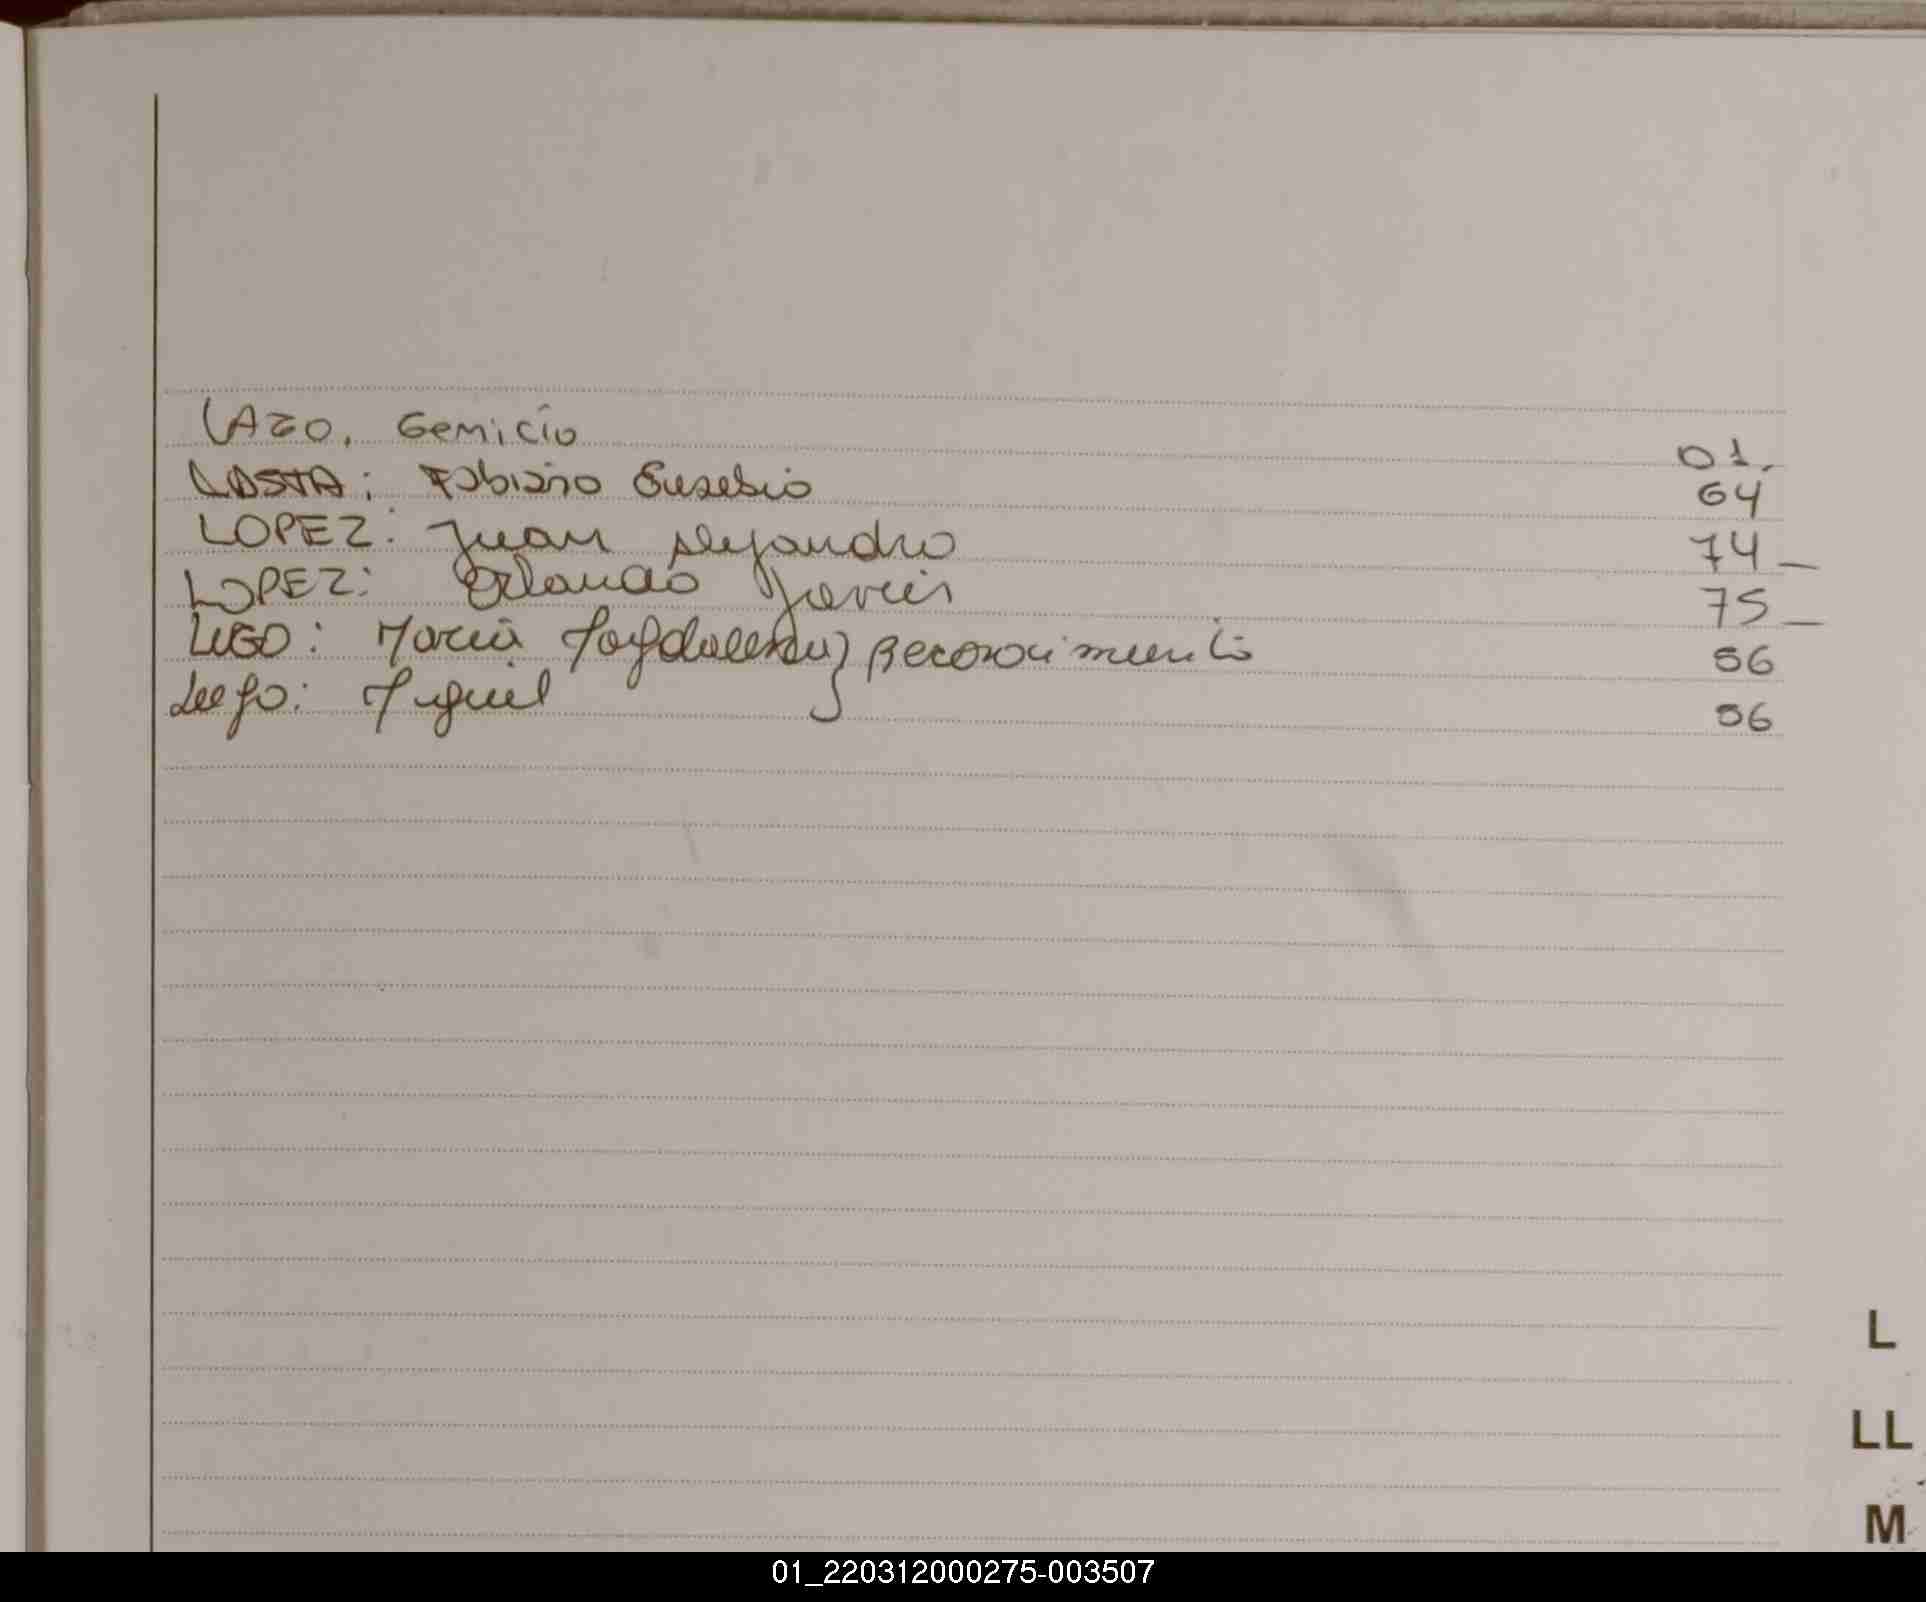 LAZO, Gemicio 01.
ACOSTA: Fabiano Eusebio 64
LOPEZ: Juan Alejandro 74 _
LOPEZ: Orlando Javier 75 _
LUGO: Maria Magdalena } Reconocimiento 56
Lugo: Miguel 56
L
LL
M
01_220312000275-003507